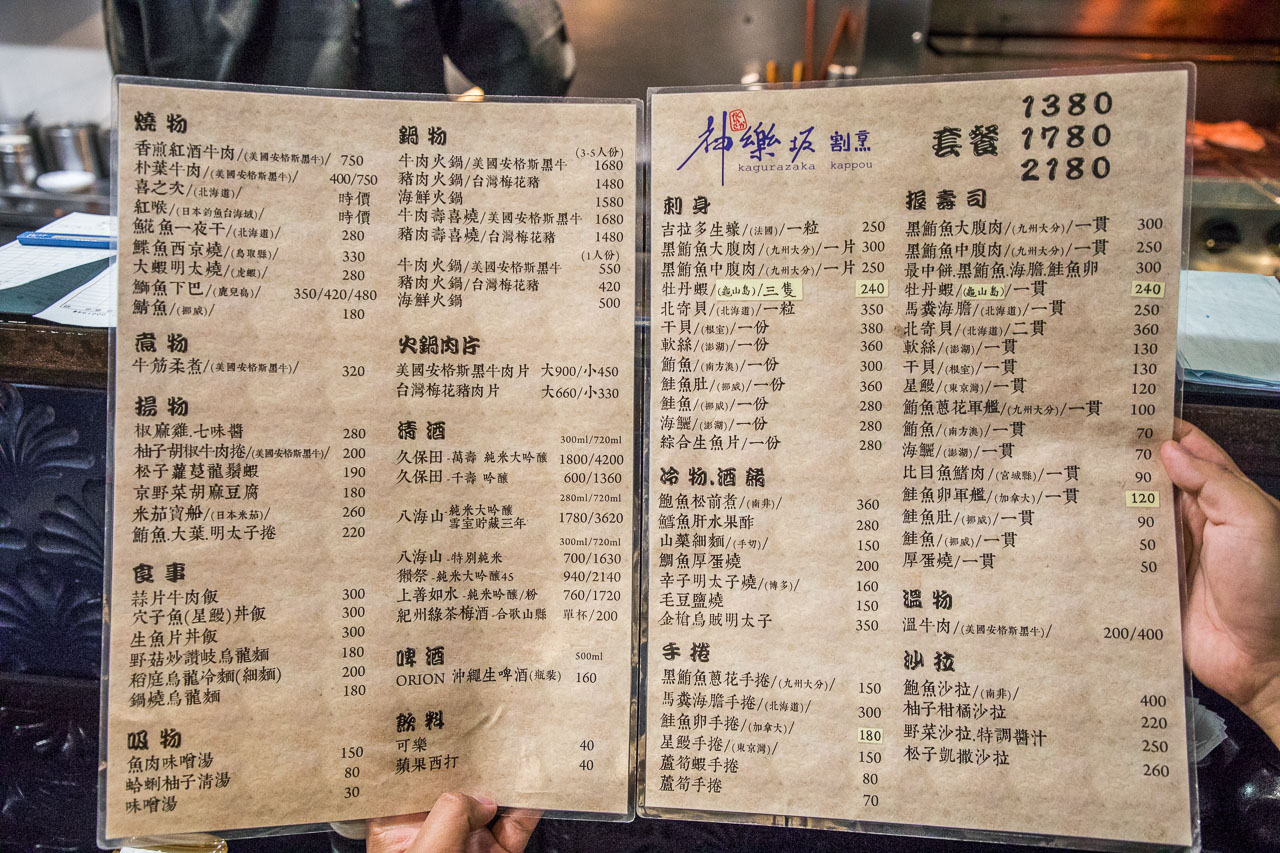 燒物
香煎紅酒牛肉/(美國安格斯黑牛)/ 750
朴葉牛肉/(美國安格斯黑牛)/ 400/750
喜之次/(北海道)/ 時價
紅喉/(日本釣魚台海域)/ 時價
魭魚一夜干/(北海道) 280
鰈魚西京燒/(鳥取縣)/ 330
大蝦明太燒/(虎蝦)/ 280
鰤魚下巴/(鹿兒島)/ 350/420/480
鯖魚/(挪威)/ 180
煮物
牛筋柔煮/(美國安格斯黑牛)/ 320
揚物
椒麻雞.七味醬 280
柚子胡椒牛肉捲/(美國安格斯黑牛)/ 200
松子蘿蔓龍鬚蝦 190
京野菜胡麻豆腐 180
米茄寶船/(日本米茄)/ 260
鮪魚.大葉.明太子捲 220
食事
蒜片牛肉飯 300
穴子魚(星鰻)丼飯 300
生魚片丼飯 300
野菇炒讚岐烏龍麵 180
稻庭烏龍冷麵(細麵) 200
鍋燒烏龍麵 180
吸物
魚肉味噌湯 150
蛤蜊柚子清湯 80
味噌湯 30
鍋物
(3-5人份)
牛肉火鍋/美國安格斯黑牛 1680
豬肉火鍋/台灣梅花豬 1480
海鮮火鍋 1580
牛肉壽喜燒/美國安格斯黑牛 1680
豬肉壽喜燒/台灣梅花豬 1480
(1人份)
牛肉火鍋/美國安格斯黑牛 550
豬肉火鍋/台灣梅花豬 420
海鮮火鍋 500
火鍋肉片
美國安格斯黑牛肉片 大900/小450
台灣梅花豬肉片 大660/小330
清酒
300ml/720ml
久保田-萬壽 純米大吟釀 1800/4200
久保田-千壽 吟釀 600/1360
280ml/720ml
八海山-純米大吟釀 雪室貯藏三年 1780/3620
300ml/720ml
八海山-特別純米 700/1630
獺祭-純米大吟釀45 940/2140
上善如水-純米吟釀/粉 760/1720
紀州綠茶梅酒-合歌山縣 單杯/200
啤酒
500ml
ORION 沖繩生啤酒(瓶裝) 160
飲料
可樂 40
蘋果西打 40
神樂坂 割烹
kagurazaka kappou
套餐
1380
1780
2180
刺身
吉拉多生蠔/(法國)/一粒 250
黑鮪魚大腹肉/(九州大分)/一片 300
黑鮪魚中腹肉/(九州大分)/一片 250
牡丹蝦/(龜山島)/三隻 240
北寄貝/(北海道)/一粒 350
干貝/(根室)/一份 380
軟絲/(澎湖)/一份 360
鮪魚/(南方澳)/一份 300
鮭魚肚/(挪威)/一份 360
鮭魚/(挪威)/一份 280
海鱺/(澎湖)/一份 280
綜合生魚片/一份 280
冷物.酒餚
鮑魚松前煮/(南非)/ 360
鱈魚肝水果酢 280
山藥細麵/(手切)/ 150
鯛魚厚蛋燒 200
辛子明太子燒/(博多)/ 160
毛豆鹽燒 150
金槍烏賊明太子 350
手捲
黑鮪魚蔥花手捲/(九州大分)/ 150
馬糞海膽手捲/(北海道)/ 300
鮭魚卵手捲/(加拿大)/ 180
星鰻手捲/(東京灣)/ 150
蘆筍蝦手捲 80
蘆筍手捲 70
握壽司
黑鮪魚大腹肉/(九州大分)/一貫 300
黑鮪魚中腹肉/(九州大分)/一貫 250
最中餅.黑鮪魚.海膽.鮭魚卵 300
牡丹蝦/(龜山島)/一貫 240
馬糞海膽/(北海道)/一貫 250
北寄貝/(北海道)/二貫 360
軟絲/(澎湖)/一貫 130
干貝/(根室)/一貫 130
星鰻/(東京灣)/一貫 120
鮪魚蔥花軍艦/(九州大分)/一貫 100
鮪魚/(南方澳)/一貫 70
海鱺/(澎湖)/一貫 70
比目魚鰭肉/(宮城縣)/一貫 90
鮭魚卵軍艦/(加拿大)/一貫 120
鮭魚肚/(挪威)/一貫 90
鮭魚/(挪威)/一貫 50
厚蛋燒/一貫 50
溫物
溫牛肉/(美國安格斯黑牛)/ 200/400
沙拉
鮑魚沙拉/(南非)/ 400
柚子柑橘沙拉 220
野菜沙拉.特調醬汁 250
松子凱撒沙拉 260